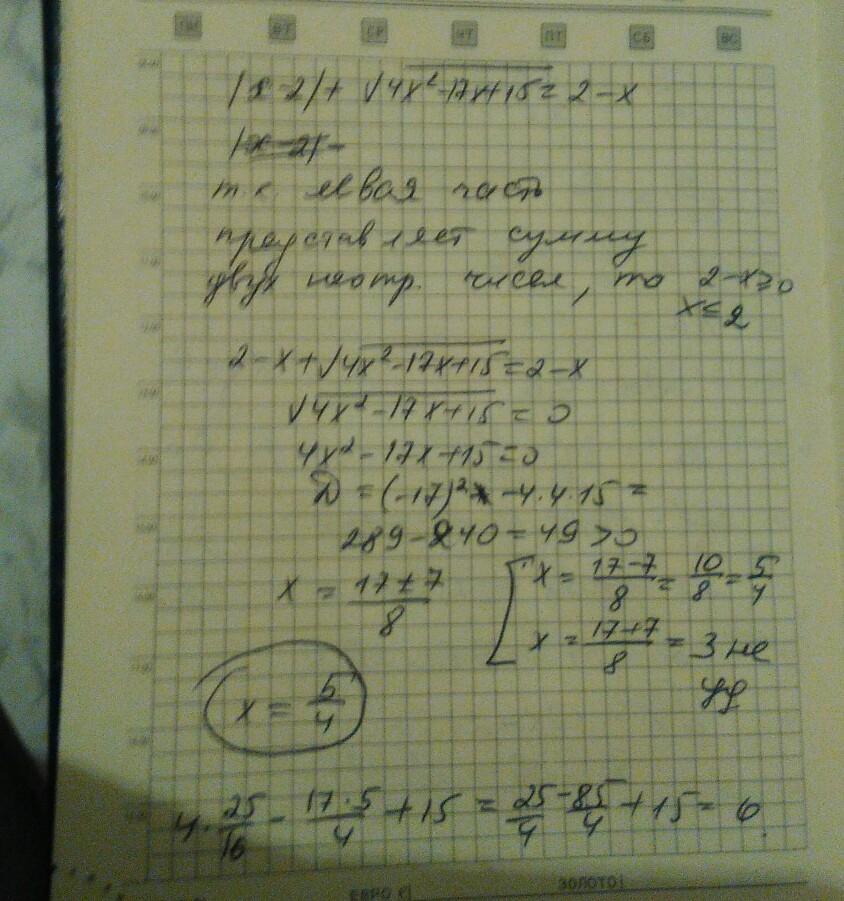 ПН ВТ СР ЧТ ПТ СБ ВС
|x-2|+ √4x²-17x+15 = 2-x
|x-2|-
т.к. левая часть
представляет сумму
двух неотр. чисел, то 2-x≥0
x≤2
2-x+√4x²-17x+15 = 2-x
√4x²-17x+15 = 0
4x²-17x+15=0
D = (-17)² -4·4·15 =
289-240=49>0
x = (17±7)/8
x = (17-7)/8 = 10/8 = 5/4
x = (17+7)/8 = 3 не
уд
x = 5/4
4·25/16 - 17·5/4 + 15 = 25/4 - 85/4 + 15 = 0
ЗОЛОТО